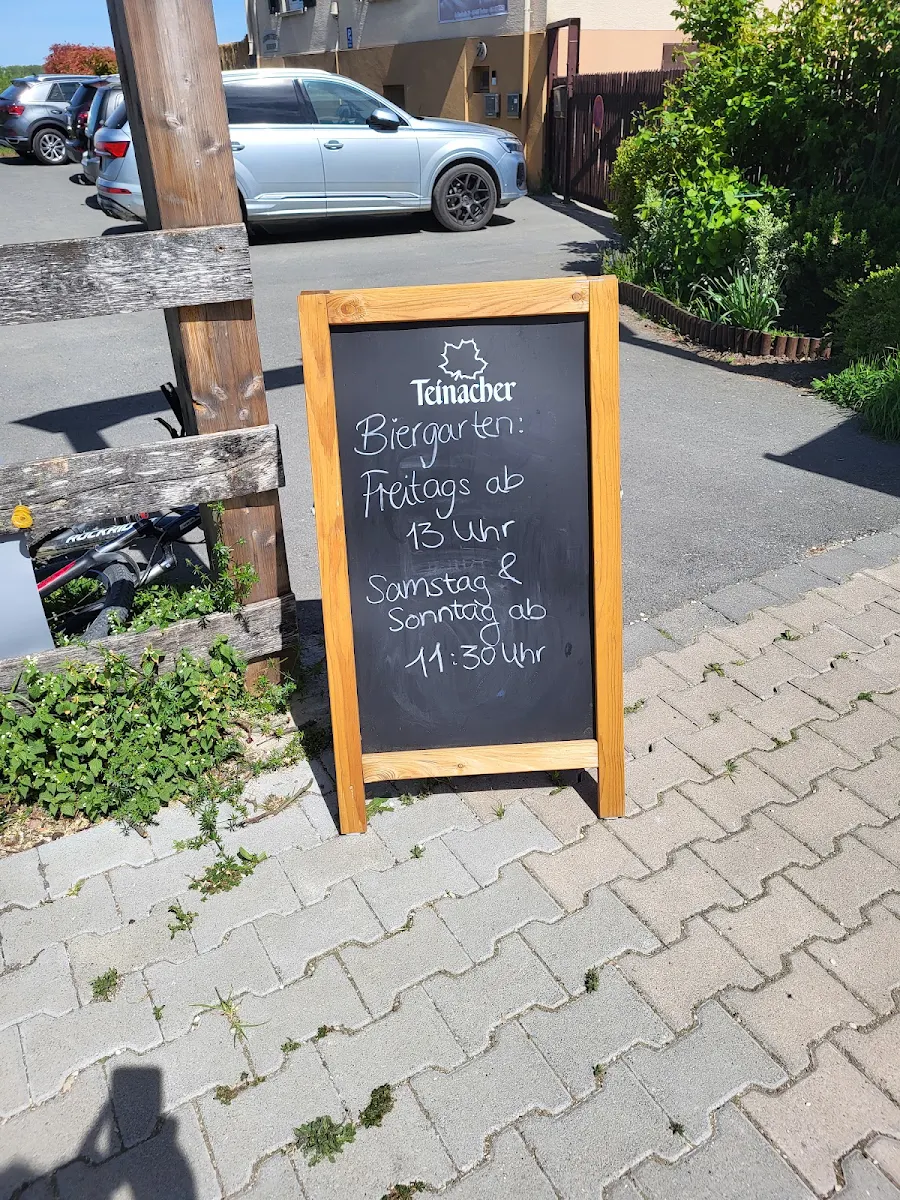 Teinacher
Biergarten:
Freitags ab
13 Uhr
Samstag &
Sonntag ab
11:30 Uhr
ROCKRIDER